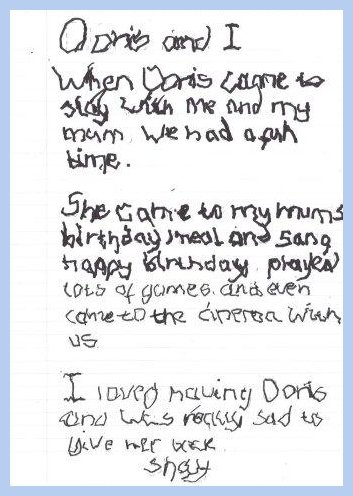 Doris and I
When Doris came to
stay with me and my
mum we had a fun
time.
She came to my mums
birthday meal and sang
happy birthday, played
lots of games and even
came to the cinema with
us
I loved having Doris
and was really sad to
give her back
Shay